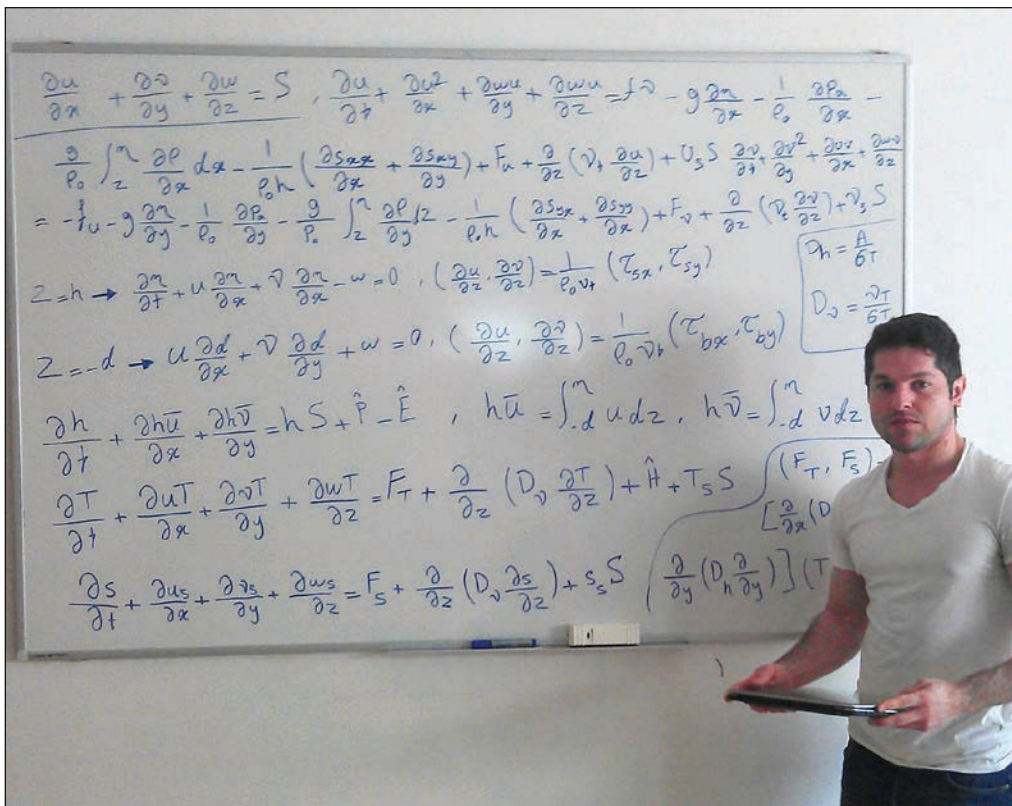 ∂u/∂x + ∂v/∂y + ∂w/∂z = S , ∂u/∂t + ∂u²/∂x + ∂wu/∂y + ∂wu/∂z = fv - g ∂η/∂x - 1/ρ₀ ∂Pa/∂x -
g/ρ₀ ∫_z^η ∂ρ/∂x dx - 1/(ρ₀h) (∂Sxx/∂x + ∂Sxy/∂y) + Fu + ∂/∂z (νt ∂u/∂z) + Us S ∂v/∂t + ∂v²/∂y + ∂vv/∂x + ∂wv/∂z
= -fu - g ∂η/∂y - 1/ρ₀ ∂Pa/∂y - g/ρ₀ ∫_z^η ∂ρ/∂y dz - 1/(ρ₀h) (∂Syx/∂x + ∂Syy/∂x) + Fv + ∂/∂z (νt ∂v/∂z) + vs S
Z = h → ∂η/∂t + u ∂η/∂x + v ∂η/∂x - w = 0 , (∂u/∂z, ∂v/∂z) = 1/(ρ₀νt) (τsx, τsy)
Dh = A/σT
Dv = νT/σT
Z = -d → u ∂d/∂x + v ∂d/∂y + w = 0 , (∂u/∂z, ∂v/∂z) = 1/(ρ₀νt) (τbx, τby)
∂h/∂t + ∂hū/∂x + ∂hv̄/∂y = hS + P̂ - Ê , hū = ∫_-d^η u dz , hv̄ = ∫_-d^η v dz
∂T/∂t + ∂uT/∂x + ∂vT/∂y + ∂wT/∂z = FT + ∂/∂z (Dv ∂T/∂z) + Ĥ + Ts S
(FT, Fs)
[∂/∂x (D
∂s/∂t + ∂us/∂x + ∂vs/∂y + ∂ws/∂z = Fs + ∂/∂z (Dv ∂s/∂z) + ss S
∂/∂y (Dh ∂/∂y)] (T